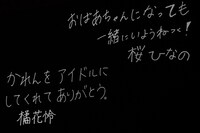 おばあちゃんになっても
一緒にいようねっく!
桜 ひなの
かれんをアイドルに
してくれてありがとう。
橘花怜